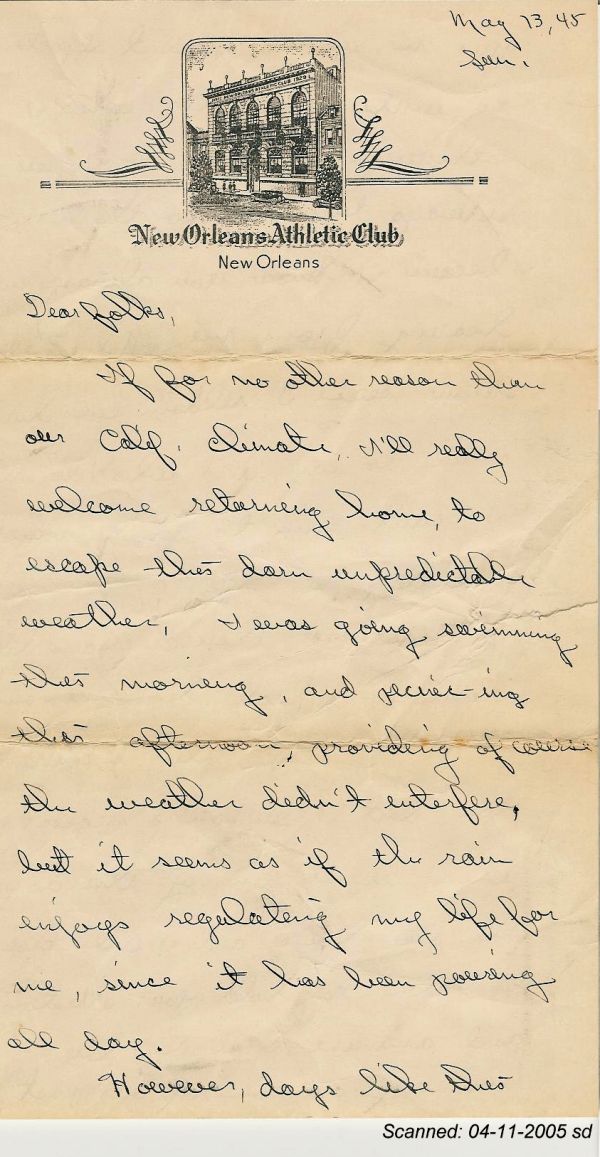 May 13, 45
Sun.
New Orleans Athletic Club
New Orleans
Dear folks,
If for no other reason than
our Calif. climate, I'll really
welcome returning home, to
escape this darn unpredictable
weather, I was going swimming
this morning, and picnic-ing
this afternoon, providing of course
the weather didn't interfere,
but it seems as if the rain
enjoys regulating my life for
me, since it has been pouring
all day.
However, days like this
Scanned: 04-11-2005 sd